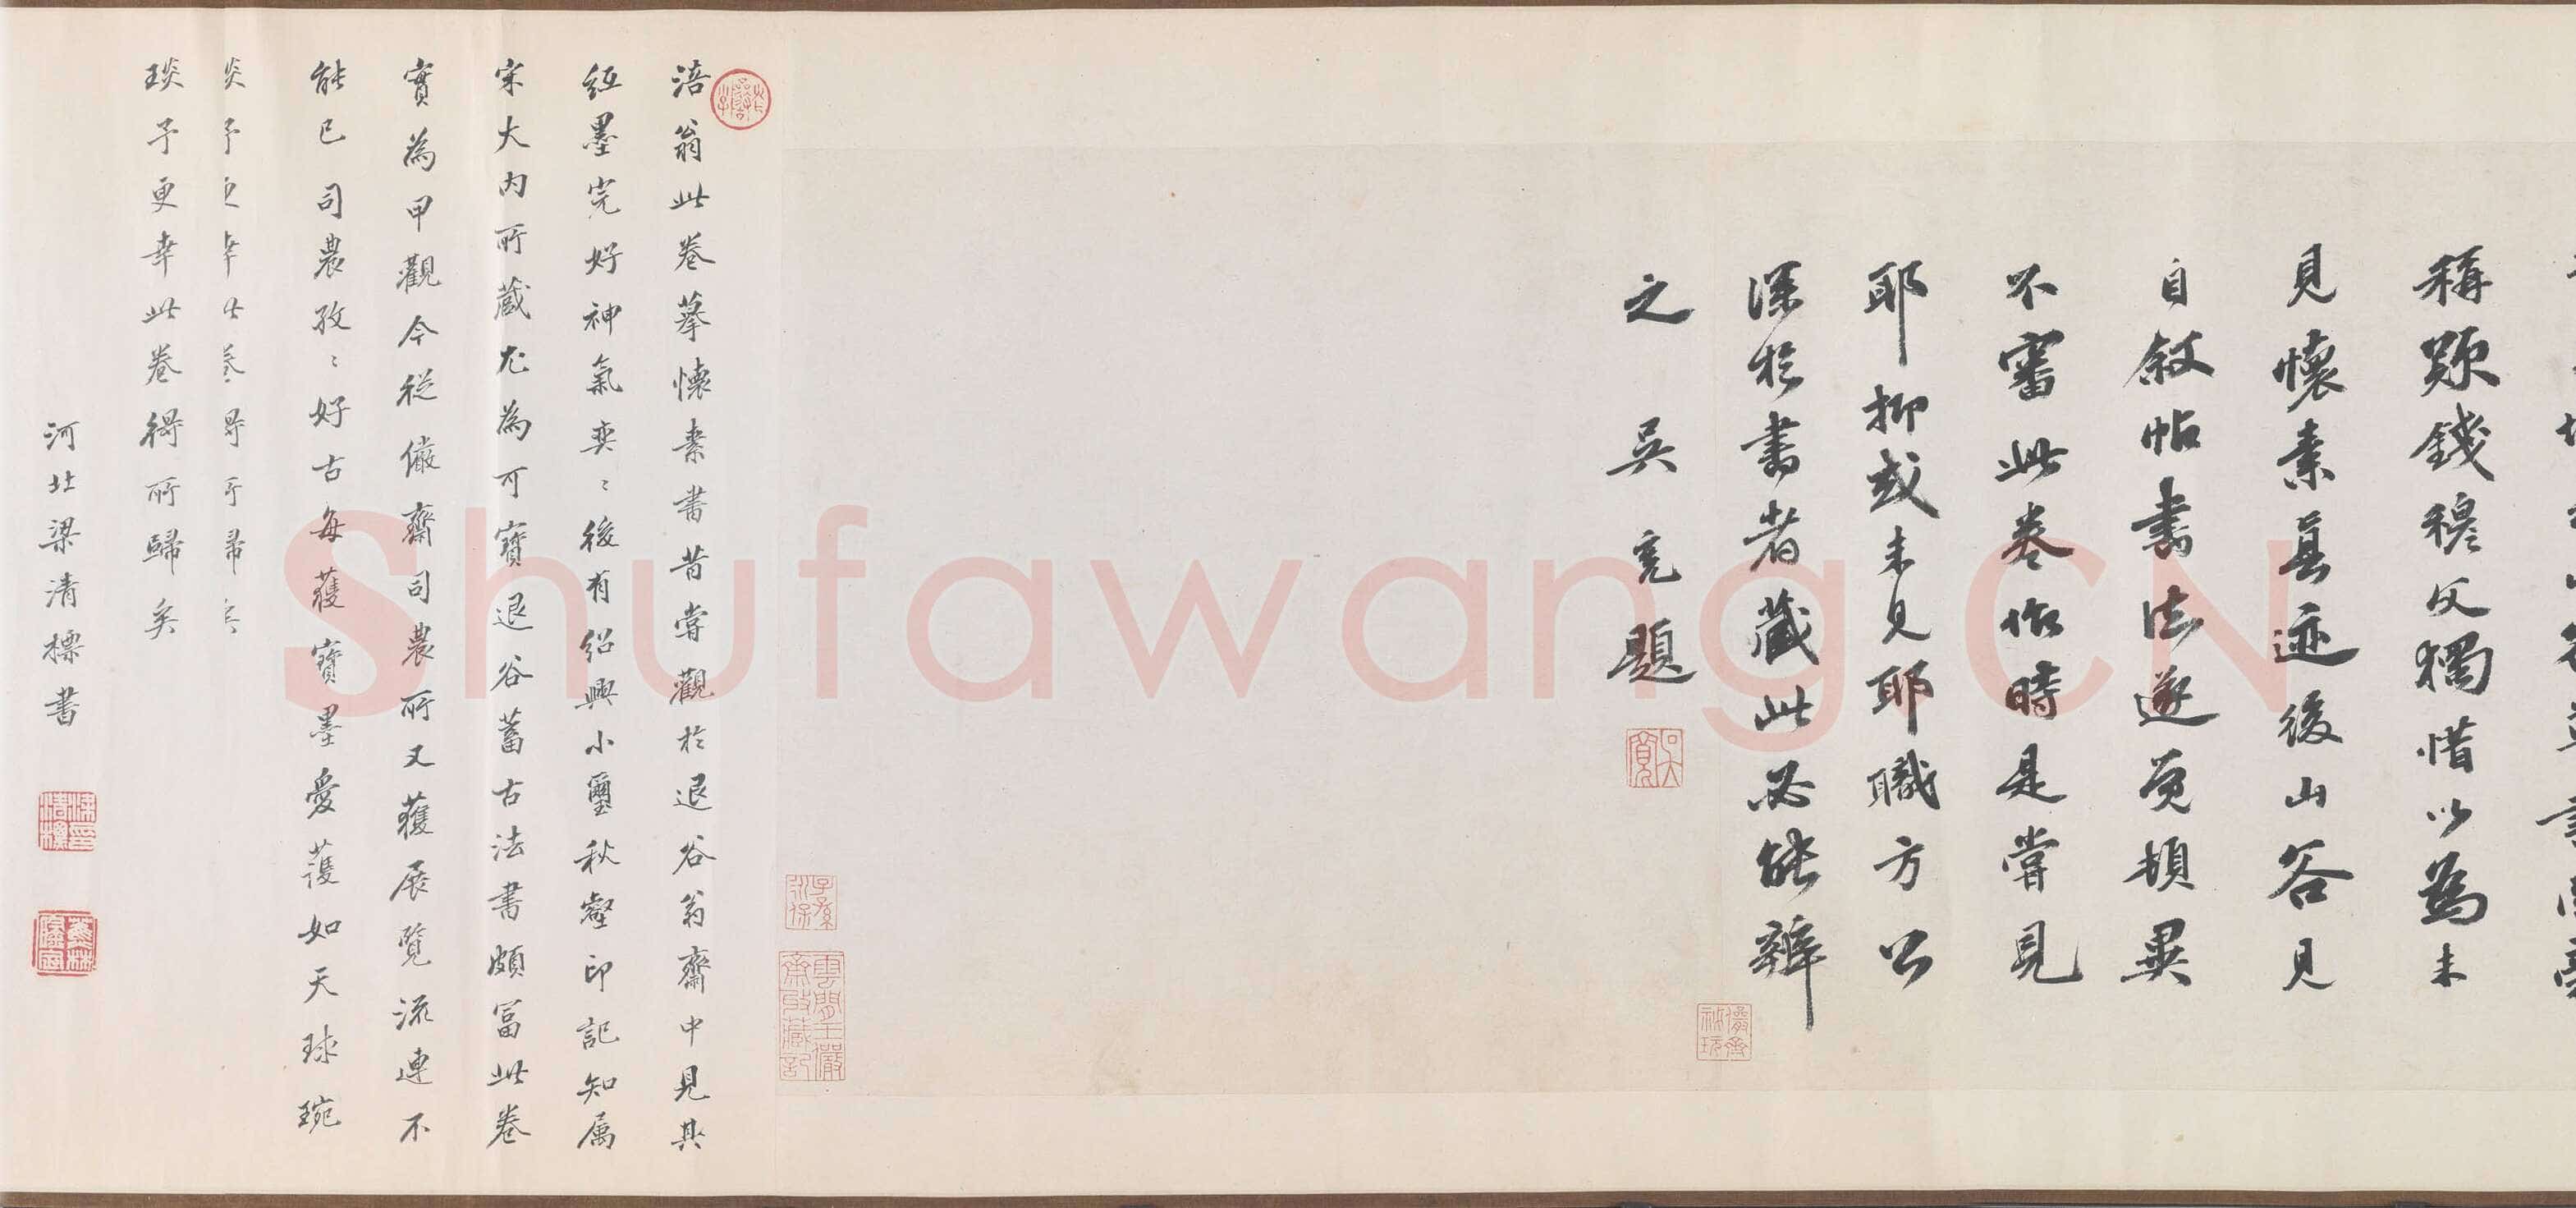 稱疑錢穆父獨惜以為未
見懷素真迹後山谷見
自敘帖書法遂覺頓異
不審此卷作時是嘗見
耶抑或未見耶職方公
深於書者藏此必能辨
之 吳寬題
涪翁此卷摹懷素書昔嘗觀於退谷翁齋中見其
紙墨完好神氣奕〻後有紹興小璽秋壑印記知属
宋大内所蔵尤為可寶退谷蓄古法書頗富此卷
實為甲觀今從儼齋司農所又獲展覽流連不
能已司農孜〻好古每獲寶墨愛護如天球琬
琰予更幸此卷得所歸矣
河北梁清標書
Shufawang.CN